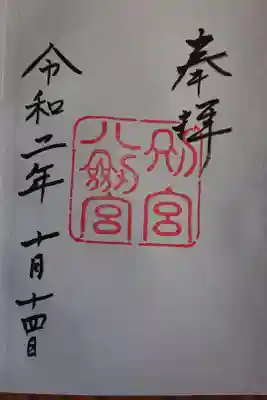 奉拝
別宮
八剣宮
令和二年 十月十四日